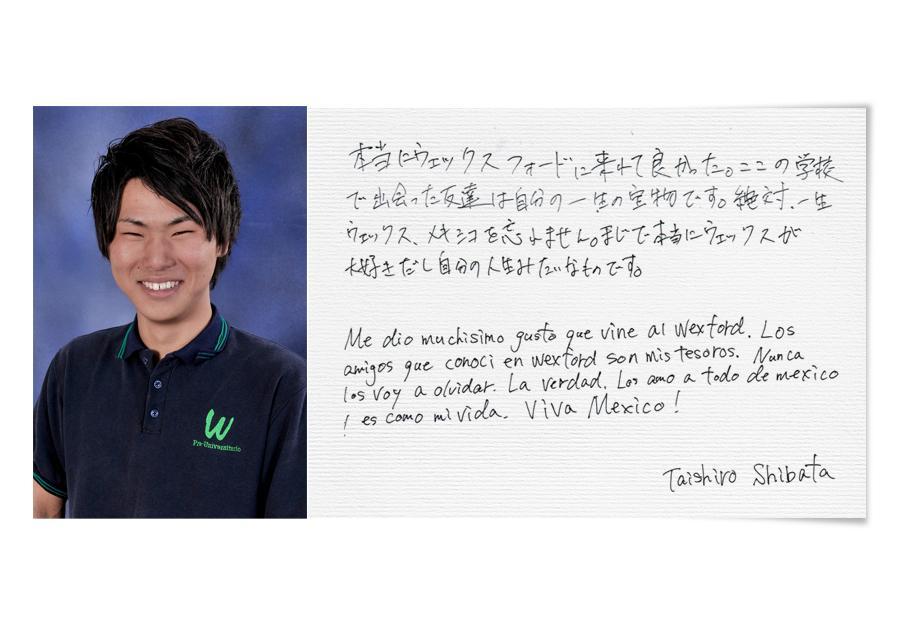 W
Pre-Universitario
本当にウェックスフォードに来れて良かった。ここの学校
で出会った友達は自分の一生の宝物です。絶対、一生
ウェックス、メキシコを忘れません。まじで本当にウェックスが
大好きだし自分の人生みたいなものです。
Me dio muchisimo gusto que vine al Wexford. Los
amigos que conoci en Wexford son mis tesoros. Nunca
los voy a olvidar. La verdad. Los amo a todo de mexico
! es como mi vida. Viva Mexico!
Taishiro Shibata